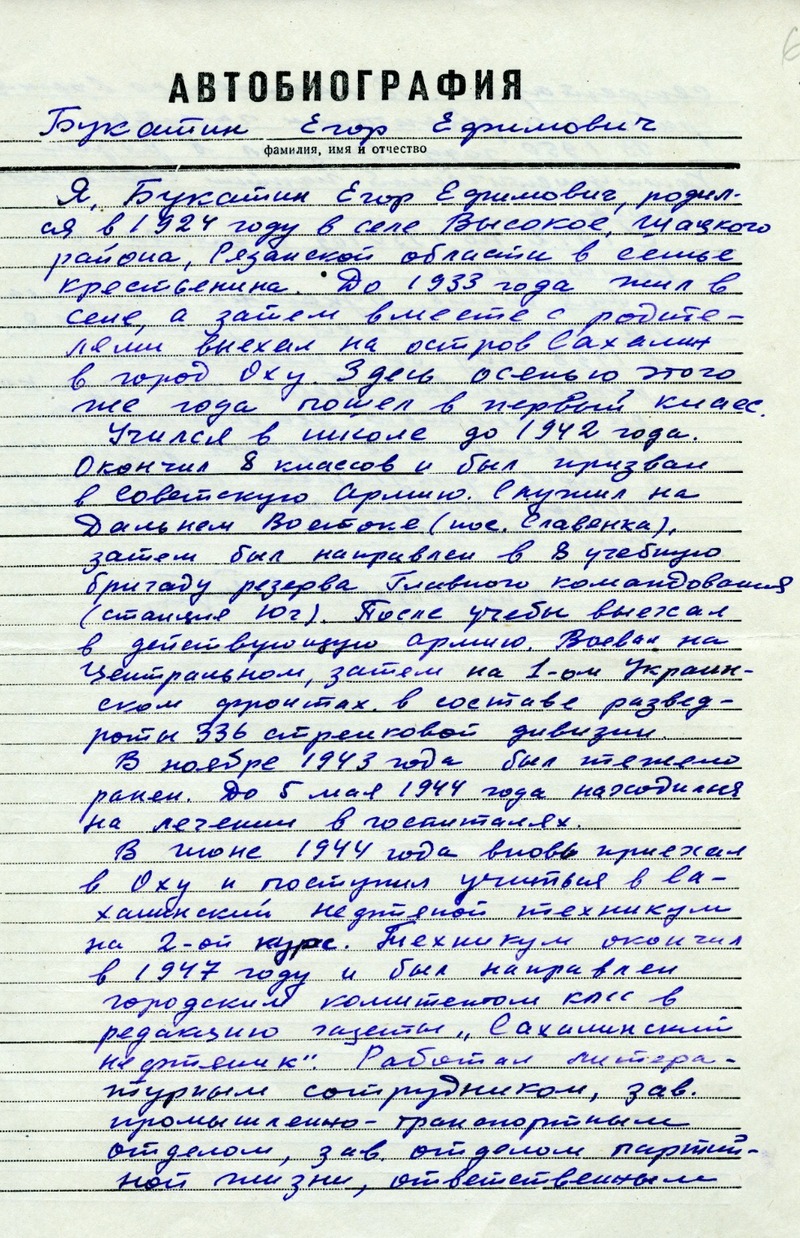 АВТОБИОГРАФИЯ
Букатин Егор Ефимович
фамилия, имя и отчество
Я, Букатин Егор Ефимович, родил-
ся в 1924 году в селе Высокое, Шацкого
района, Рязанской области в семье
крестьенина. До 1933 года жил в
селе, а затем вместе с родите-
лями выехал на остров Сахалин
в город Оху. Здесь осенью этого
же года пошел в первый класс.
Учился в школе до 1942 года.
Окончил 8 классов и был призван
в Советскую Армию. Служил на
Дальнем Востоке (пос. Славенка),
затем был направлен в 8 учебную
бригаду резерва Главного командования
(станция Юг). После учебы выехал
в действующую армию. Воевал на
Центральном, затем на 1-ом Украин-
ском фронтах в составе развед-
роты 336 стрелковой дивизии.
В ноябре 1943 года был тяжело
ранен. До 5 мая 1944 года находился
на лечении в госпиталях.
В июне 1944 года вновь приехал
в Оху и поступил учиться в Са-
халинский нефтяной техникум
на 2-ой курс. Техникум окончил
в 1947 году и был направлен
городским комитетом КПСС в
редакцию газеты „Сахалинский
нефтяник". Работал литера-
турным сотрудником, зав.
промышленно-транспортным
отделом, зав. отделом партий-
ной жизни, ответственным